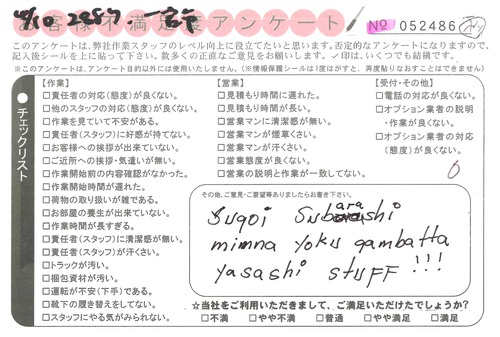 お客様不満足度アンケート
No 052486
このアンケートは、弊社作業スタッフのレベル向上に役立てたいと思います。否定的なアンケートになりますので、
記入後シールを上に貼って下さい。数多くの正直なご意見をお願いします。✓印は、いくつでも結構です。
※このアンケートは、アンケート目的以外には使用いたしません。(※情報保護シールは1度はがすと、再度貼りなおすことはできません)
チェックリスト
【作業】
□責任者の対応(態度)が良くない。
□他のスタッフの対応(態度)が良くない。
□作業を見ていて不安がある。
□責任者(スタッフ)に好感が持てない。
□お客様への挨拶が出来ていない。
□ご近所への挨拶・気遣いが無い。
□作業開始前の内容確認がなかった。
□作業開始時間が遅れた。
□荷物の取り扱いが雑である。
□お部屋の養生が出来ていない。
□作業時間が長すぎる。
□責任者(スタッフ)に清潔感が無い。
□責任者(スタッフ)が汗くさい。
□トラックが汚い。
□梱包資材が汚い。
□運転が不安(下手)である。
□靴下の履き替えをしてない。
□スタッフにやる気がみられない。
【営業】
□見積もり時間に遅れた。
□見積もり時間が長い。
□営業マンに清潔感が無い。
□営業マンが煙草くさい。
□営業マンが汗くさい。
□営業態度が良くない。
□営業の説明と作業が一致してない。
【受付・その他】
□電話の対応が良くない。
□オプション業者の説明
・作業が良くない。
□オプション業者の対応
(態度)が良くない。
0
その他、ご意見・ご要望等ありましたらお書き下さい。
sugoi subarashi
mimna yoku gambatta
yasashi stuff !!!
☆当社をご利用いただきまして、ご満足いただけたでしょうか?
□不満 □やや不満 □普通 □やや満足 □満足